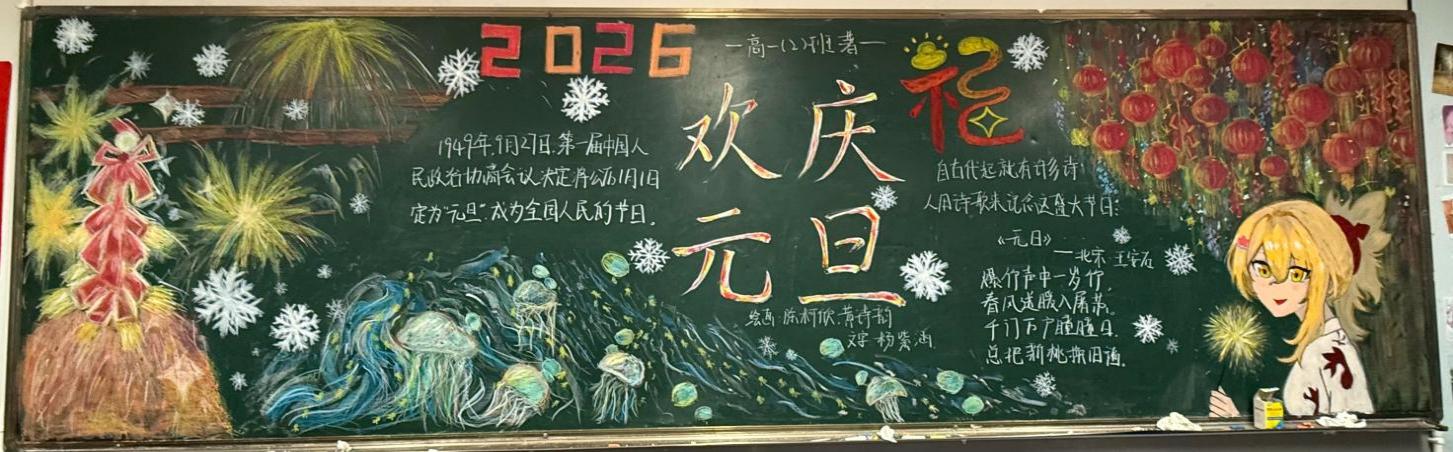 2026
一高一(2)班著一
欢庆
元旦
1949年9月27日.第一届中国人
民政治协商会议决定将公历1月1日
定为"元旦".成为全国人民的节日。
绘画:陈柯欣.黄诗韵
文字:杨紫涵
福
自古代起就有许多诗
人用诗歌来纪念这盛大节日:
《元日》
——北宋 王安石
爆竹声中一岁除,
春风送暖入屠苏。
千门万户瞳瞳日,
总把新桃换旧符。